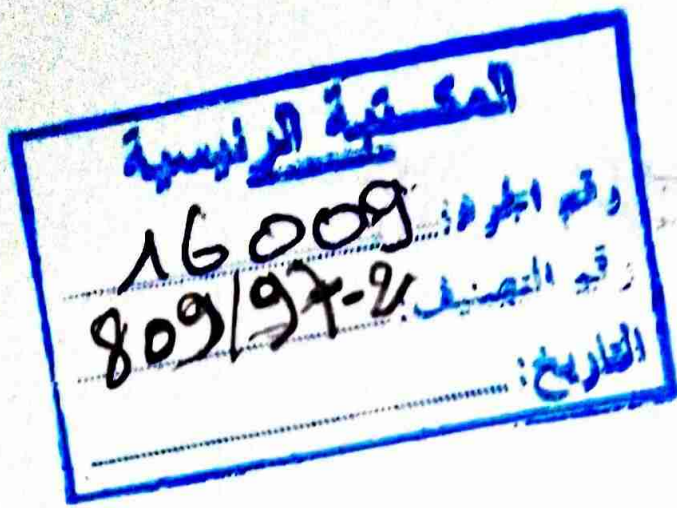 المكتبة الرئيسية
رقم الجرد: 16009
رقم التصنيف: 809/97-2
التاريخ: